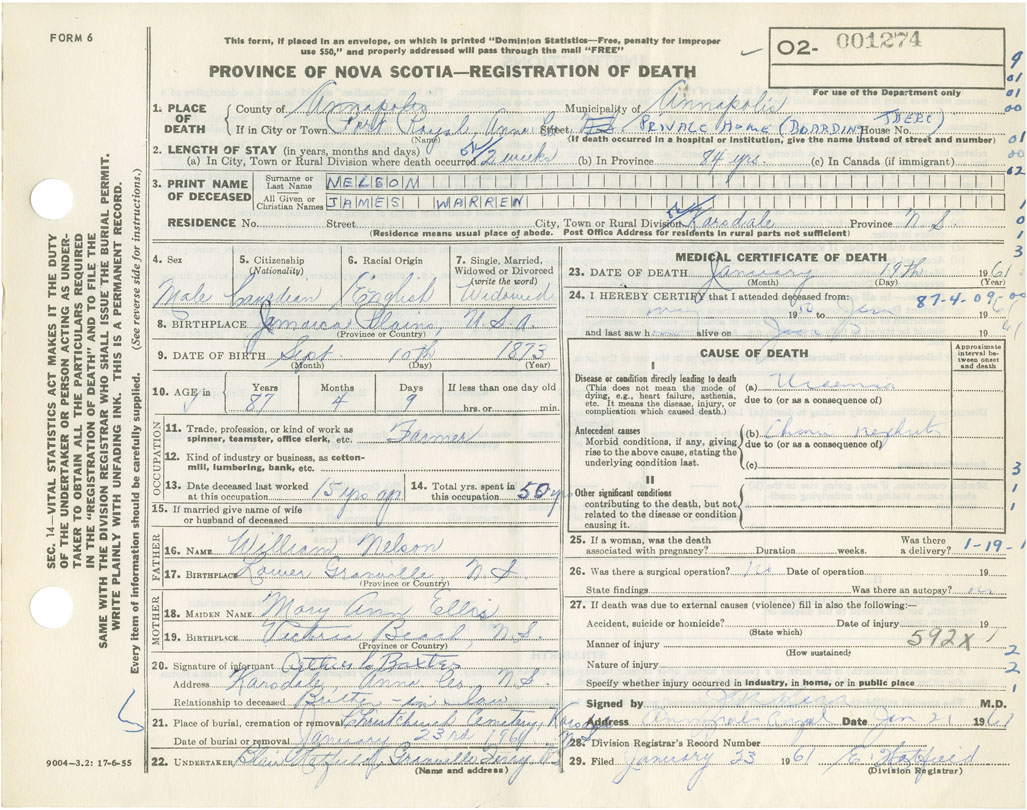 FORM 6
This form, if placed in an envelope, on which is printed "Dominion Statistics—Free, penalty for improper
use $50," and properly addressed will pass through the mail "FREE"
O2- 001274
PROVINCE OF NOVA SCOTIA—REGISTRATION OF DEATH
For use of the Department only
1. PLACE OF DEATH { County of Annapolis Municipality of Annapolis
If in City or Town Port Royal, Anna Co Street PRIVATE HOME (BOARDING THERE) House No.
(Name) (If death occurred in a hospital or institution, give the name instead of street and number)
2. LENGTH OF STAY (in years, months and days)
(a) In City, Town or Rural Division where death occurred 2 weeks (b) In Province 84 yrs. (c) In Canada (if immigrant)
3. PRINT NAME OF DECEASED { Surname or Last Name NELSON
All Given or Christian Names JAMES WARREN
RESIDENCE No. Street City, Town or Rural Division Karsdale Province N S.
(Residence means usual place of abode. Post Office Address for residents in rural parts not sufficient)
4. Sex 5. Citizenship (Nationality) 6. Racial Origin 7. Single, Married, Widowed or Divorced (write the word)
Male Canadian English Widowed
8. BIRTHPLACE Jamaica Plains, U.S.A.
(Province or Country)
9. DATE OF BIRTH Sept. 10th 1873
(Month) (Day) (Year)
10. AGE in Years Months Days If less than one day old
87 4 9 hrs. or min.
OCCUPATION
11. Trade, profession, or kind of work as spinner, teamster, office clerk, etc. Farmer
12. Kind of industry or business, as cotton-mill, lumbering, bank, etc.
13. Date deceased last worked at this occupation 15 yrs ago 14. Total yrs. spent in this occupation 50 yrs
15. If married give name of wife or husband of deceased
FATHER
16. NAME William Nelson
17. BIRTHPLACE Lower Granville N.S.
(Province or Country)
MOTHER
18. MAIDEN NAME Mary Ann Ellis
19. BIRTHPLACE Victoria Beach, N.S.
(Province or Country)
20. Signature of informant Arthur L Baxter
Address Karsdale, Anna Co. N.S.
Relationship to deceased Brother in law
21. Place of burial, cremation or removal Christ Church Cemetery, Karsdale
Date of burial or removal January 23rd 1961 N.S.
22. UNDERTAKER Blair Hatfield, Granville Ferry NS
(Name and address)
9004—3.2: 17-6-55
MEDICAL CERTIFICATE OF DEATH
23. DATE OF DEATH January 19th 1961
(Month) (Day) (Year)
24. I HEREBY CERTIFY that I attended deceased from: 87-4-09
May 19 to Jan 19
and last saw h alive on Jan 19
CAUSE OF DEATH
Approximate interval between onset and death
I
Disease or condition directly leading to death (a) Uraemia
(This does not mean the mode of dying, e.g., heart failure, asthenia, etc. It means the disease, injury, or complication which caused death.) due to (or as a consequence of)
Antecedent causes (b) Chronic Nephritis
Morbid conditions, if any, giving rise to the above cause, stating the underlying condition last. due to (or as a consequence of)
(c)
II
Other significant conditions
contributing to the death, but not related to the disease or condition causing it.
25. If a woman, was the death associated with pregnancy? Duration weeks. Was there a delivery? 1-19-1
26. Was there a surgical operation? No Date of operation 19
State findings Was there an autopsy? no
27. If death was due to external causes (violence) fill in also the following:—
Accident, suicide or homicide? Date of injury 19
(State which)
Manner of injury 592X
(How sustained)
Nature of injury
Specify whether injury occurred in industry, in home, or in public place
Signed by M.D.
Address Annapolis Royal Date Jan 21 1961
28. Division Registrar's Record Number
29. Filed January 23 1961 E. Hatfield
(Division Registrar)
SEC. 14—VITAL STATISTICS ACT MAKES IT THE DUTY
OF THE UNDERTAKER OR PERSON ACTING AS UNDER-
TAKER TO OBTAIN ALL THE PARTICULARS REQUIRED
IN THE "REGISTRATION OF DEATH" AND TO FILE THE
SAME WITH THE DIVISION REGISTRAR WHO SHALL ISSUE THE BURIAL PERMIT.
WRITE PLAINLY WITH UNFADING INK. THIS IS A PERMANENT RECORD.
Every item of information should be carefully supplied. (See reverse side for instructions.)
9
01
01
00
00
02
1
0
1
3
00
3
1
1
1
2
2
1